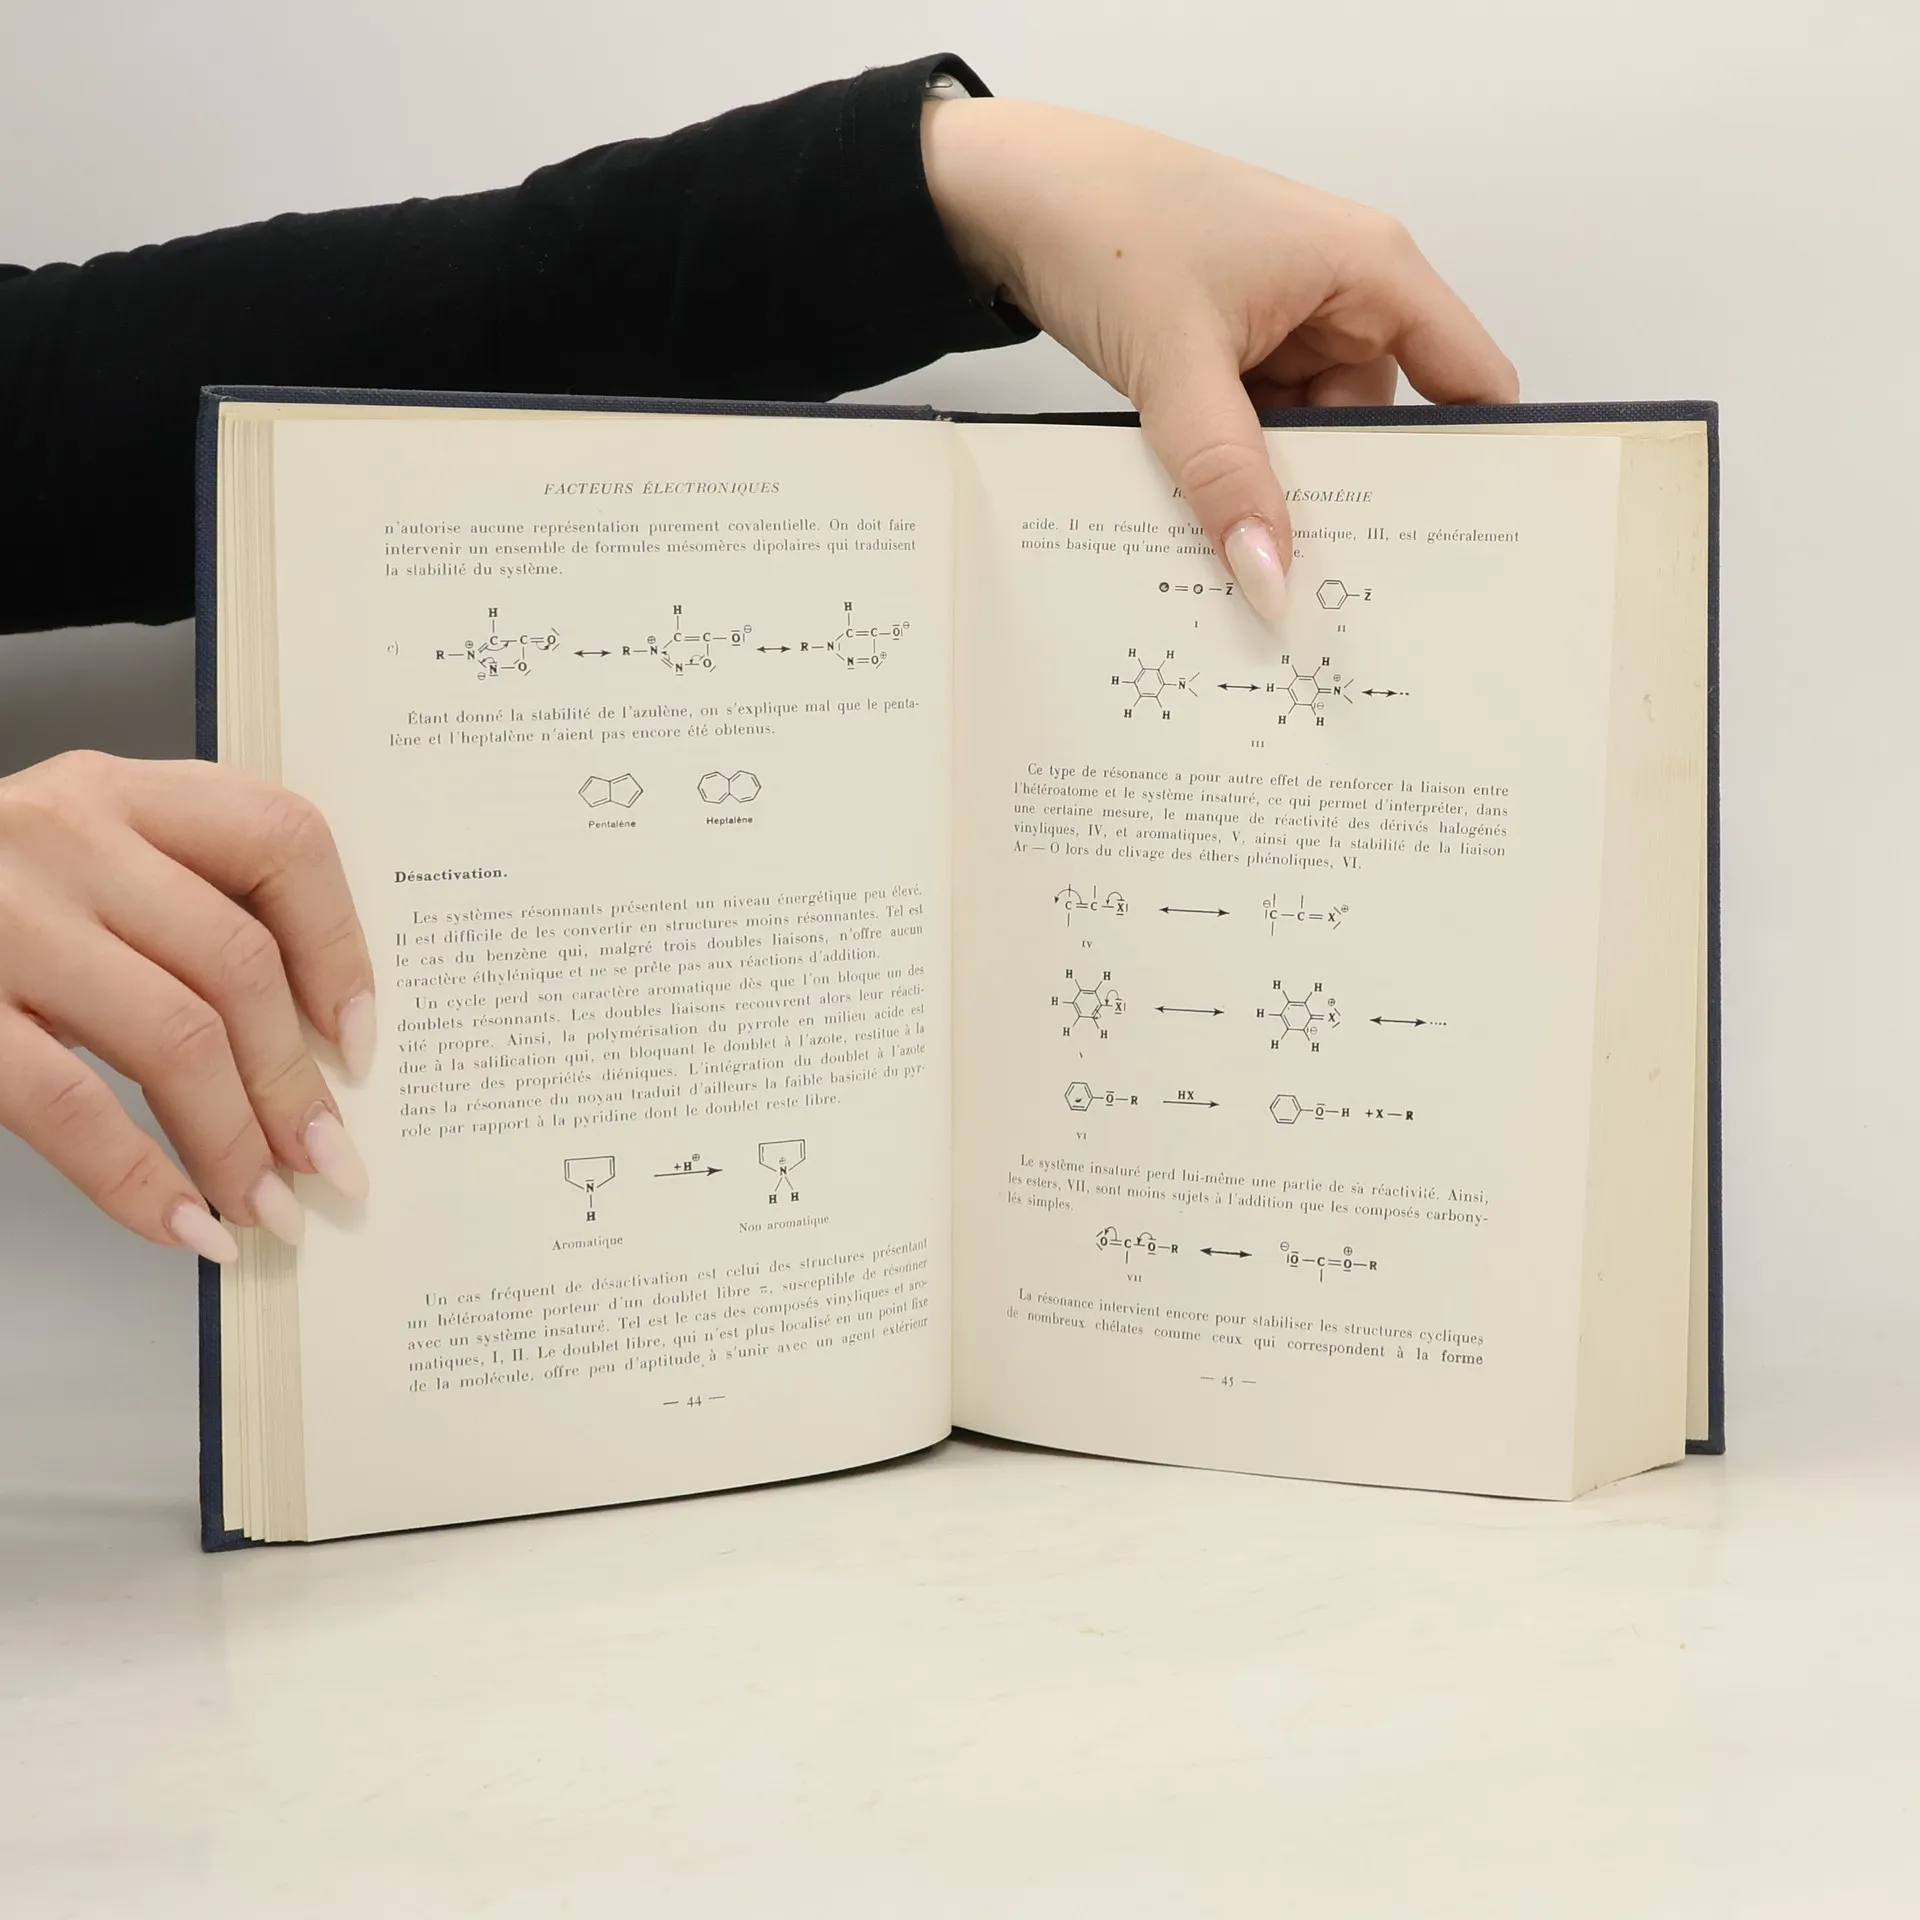 FACTEURS ÉLECTRONIQUES
n'autorise aucune représentation purement covalentielle. On doit faire
intervenir un ensemble de formules mésomères dipolaires qui traduisent
la stabilité du système.
c)
Étant donné la stabilité de l'azulène, on s'explique mal que le penta-
lène et l'heptalène n'aient pas encore été obtenus.
Pentalène Heptalène
Désactivation.
Les systèmes résonnants présentent un niveau énergétique peu élevé.
Il est difficile de les convertir en structures moins résonnantes. Tel est
le cas du benzène qui, malgré trois doubles liaisons, n'offre aucun
caractère éthylénique et ne se prête pas aux réactions d'addition.
Un cycle perd son caractère aromatique dès que l'on bloque un des
doublets résonnants. Les doubles liaisons recouvrent alors leur réacti-
vité propre. Ainsi, la polymérisation du pyrrole en milieu acide est
due à la salification qui, en bloquant le doublet à l'azote, restitue à la
structure des propriétés diéniques. L'intégration du doublet à l'azote
dans la résonance du noyau traduit d'ailleurs la faible basicité du pyr-
role par rapport à la pyridine dont le doublet reste libre.
+H⊕
Aromatique Non aromatique
Un cas fréquent de désactivation est celui des structures présentant
un hétéroatome porteur d'un doublet libre z̄, susceptible de résonner
avec un système insaturé. Tel est le cas des composés vinyliques et aro-
matiques, I, II. Le doublet libre, qui n'est plus localisé en un point fixe
de la molécule, offre peu d'aptitude à s'unir avec un agent extérieur
— 44 —
MÉSOMÉRIE
acide. Il en résulte omatique, III, est généralement
moins basique qu'une amine
I II
III
Ce type de résonance a pour autre effet de renforcer la liaison entre
l'hétéroatome et le système insaturé, ce qui permet d'interpréter, dans
une certaine mesure, le manque de réactivité des dérivés halogénés
vinyliques, IV, et aromatiques, V, ainsi que la stabilité de la liaison
Ar — O lors du clivage des éthers phénoliques, VI.
IV
V
Ō—R HX Ō—H +X—R
VI
Le système insaturé perd lui-même une partie de sa réactivité. Ainsi,
les esters, VII, sont moins sujets à l'addition que les composés carbony-
lés simples.
VII
La résonance intervient encore pour stabiliser les structures cycliques
de nombreux chélates comme ceux qui correspondent à la forme
— 45 —